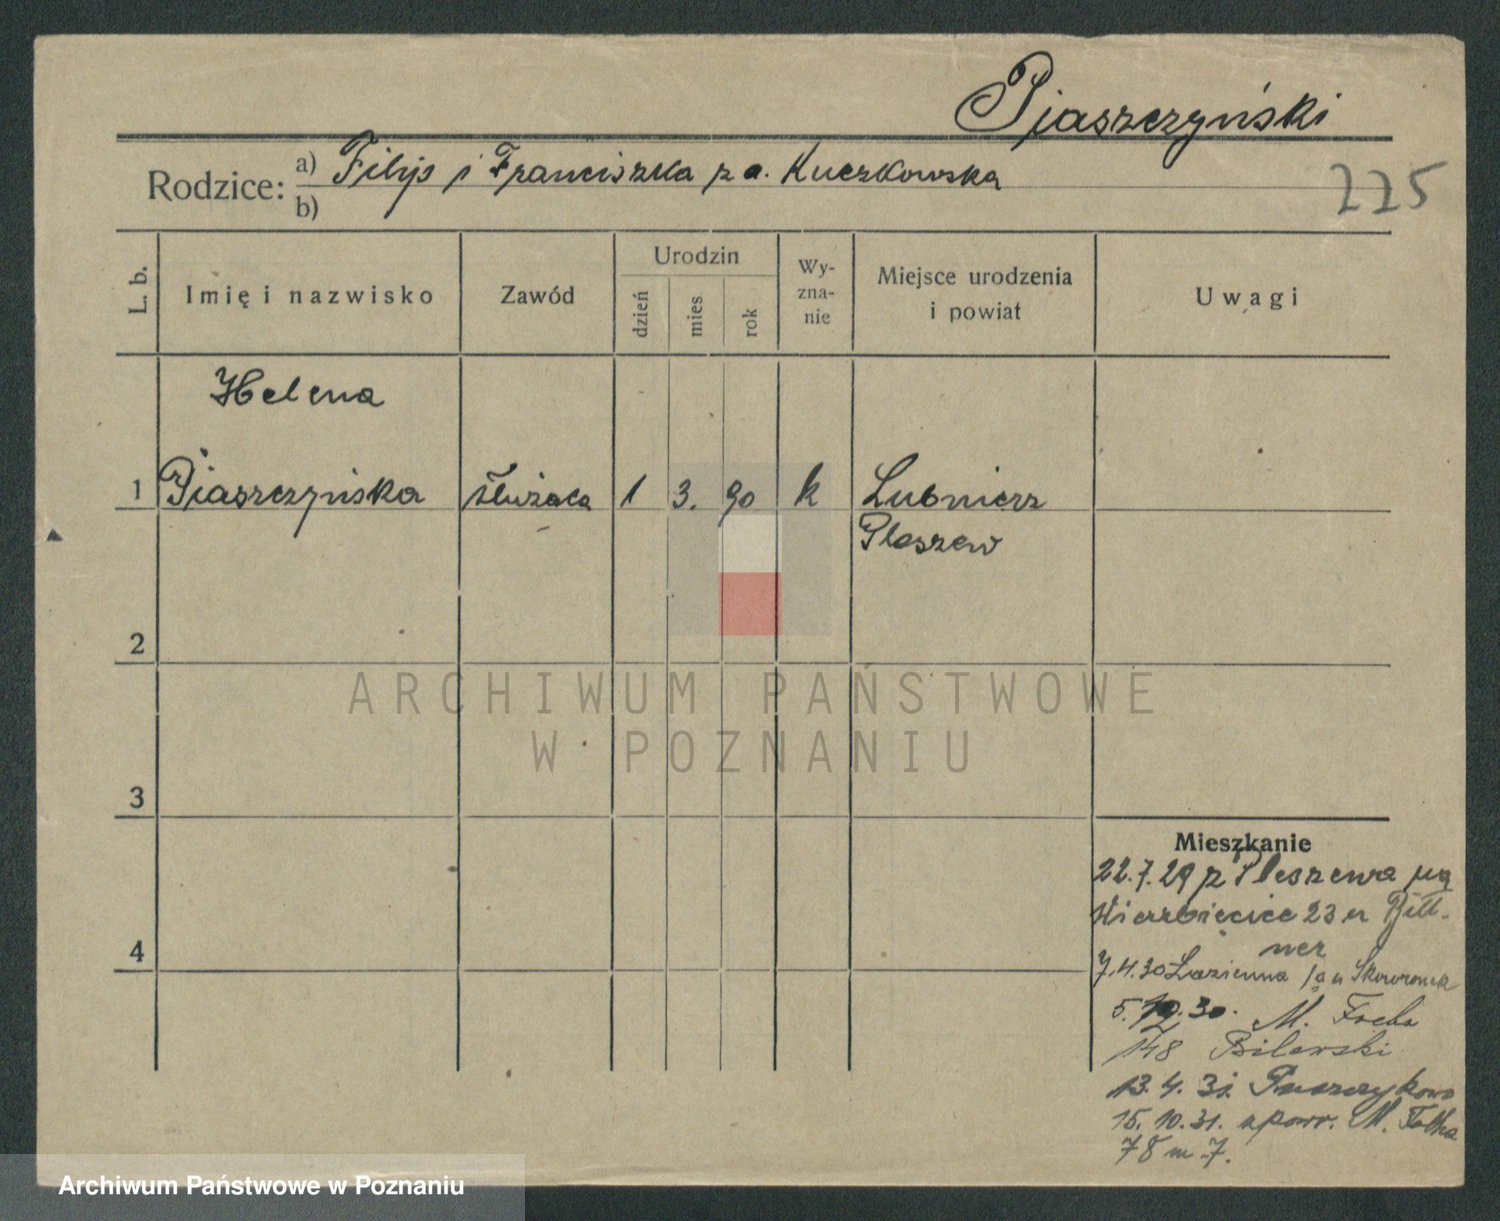 Piaszczyński
Rodzice: a) Filip i Franciszka z d. Kuczkowska
b)
225
L. b.
Imię i nazwisko
Zawód
Urodzin
dzień
mies.
rok
Wy-
zna-
nie
Miejsce urodzenia
i powiat
Uwagi
Helena
1 Piaszczyńska służąca 1 3. 90 k Lubnierz
Pleszew
2
ARCHIWUM PAŃSTWOWE
W POZNANIU
3
Mieszkanie
22.7.29 z Pleszewa na
Wierzbięcice 23 u Bitt-
ner
4
7.4.30 Łazienna u Skowronek
5. 30. M. Focha
148 Bilerski
13.4.31.
15.10.31. z pow. M. Focha
78 m. 7.
Archiwum Państwowe w Poznaniu